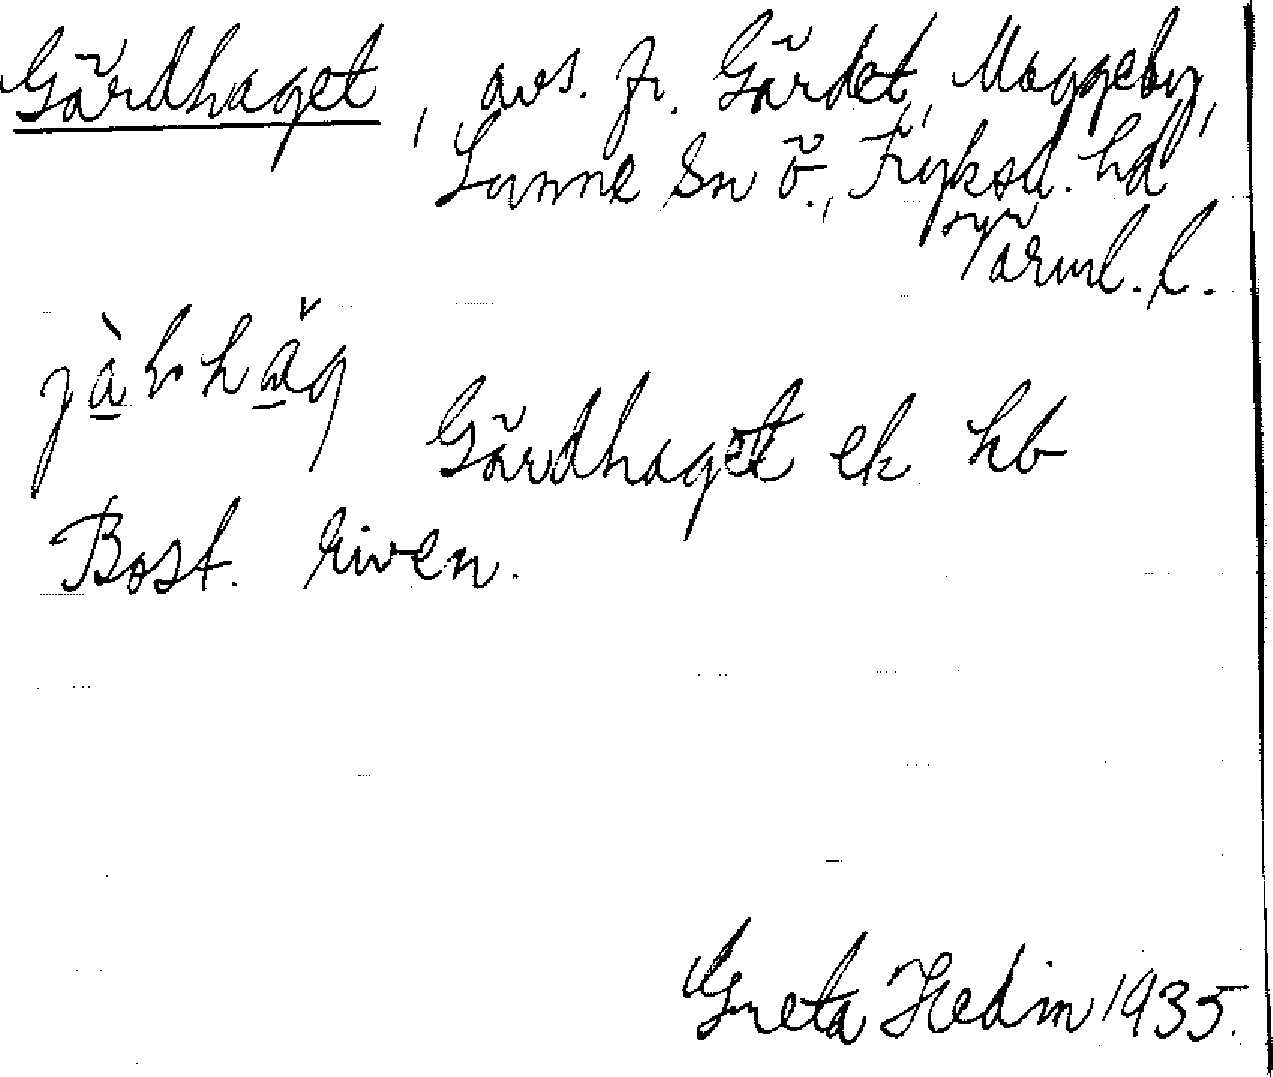 Gärdhaget, avs. fr. Gärdet, Moggeby,
Sunne Sn ö., Fryksd. hd
Värml. l.
Gärdhaget ek hb
Bost. riven.
Greta Hedin 1935.